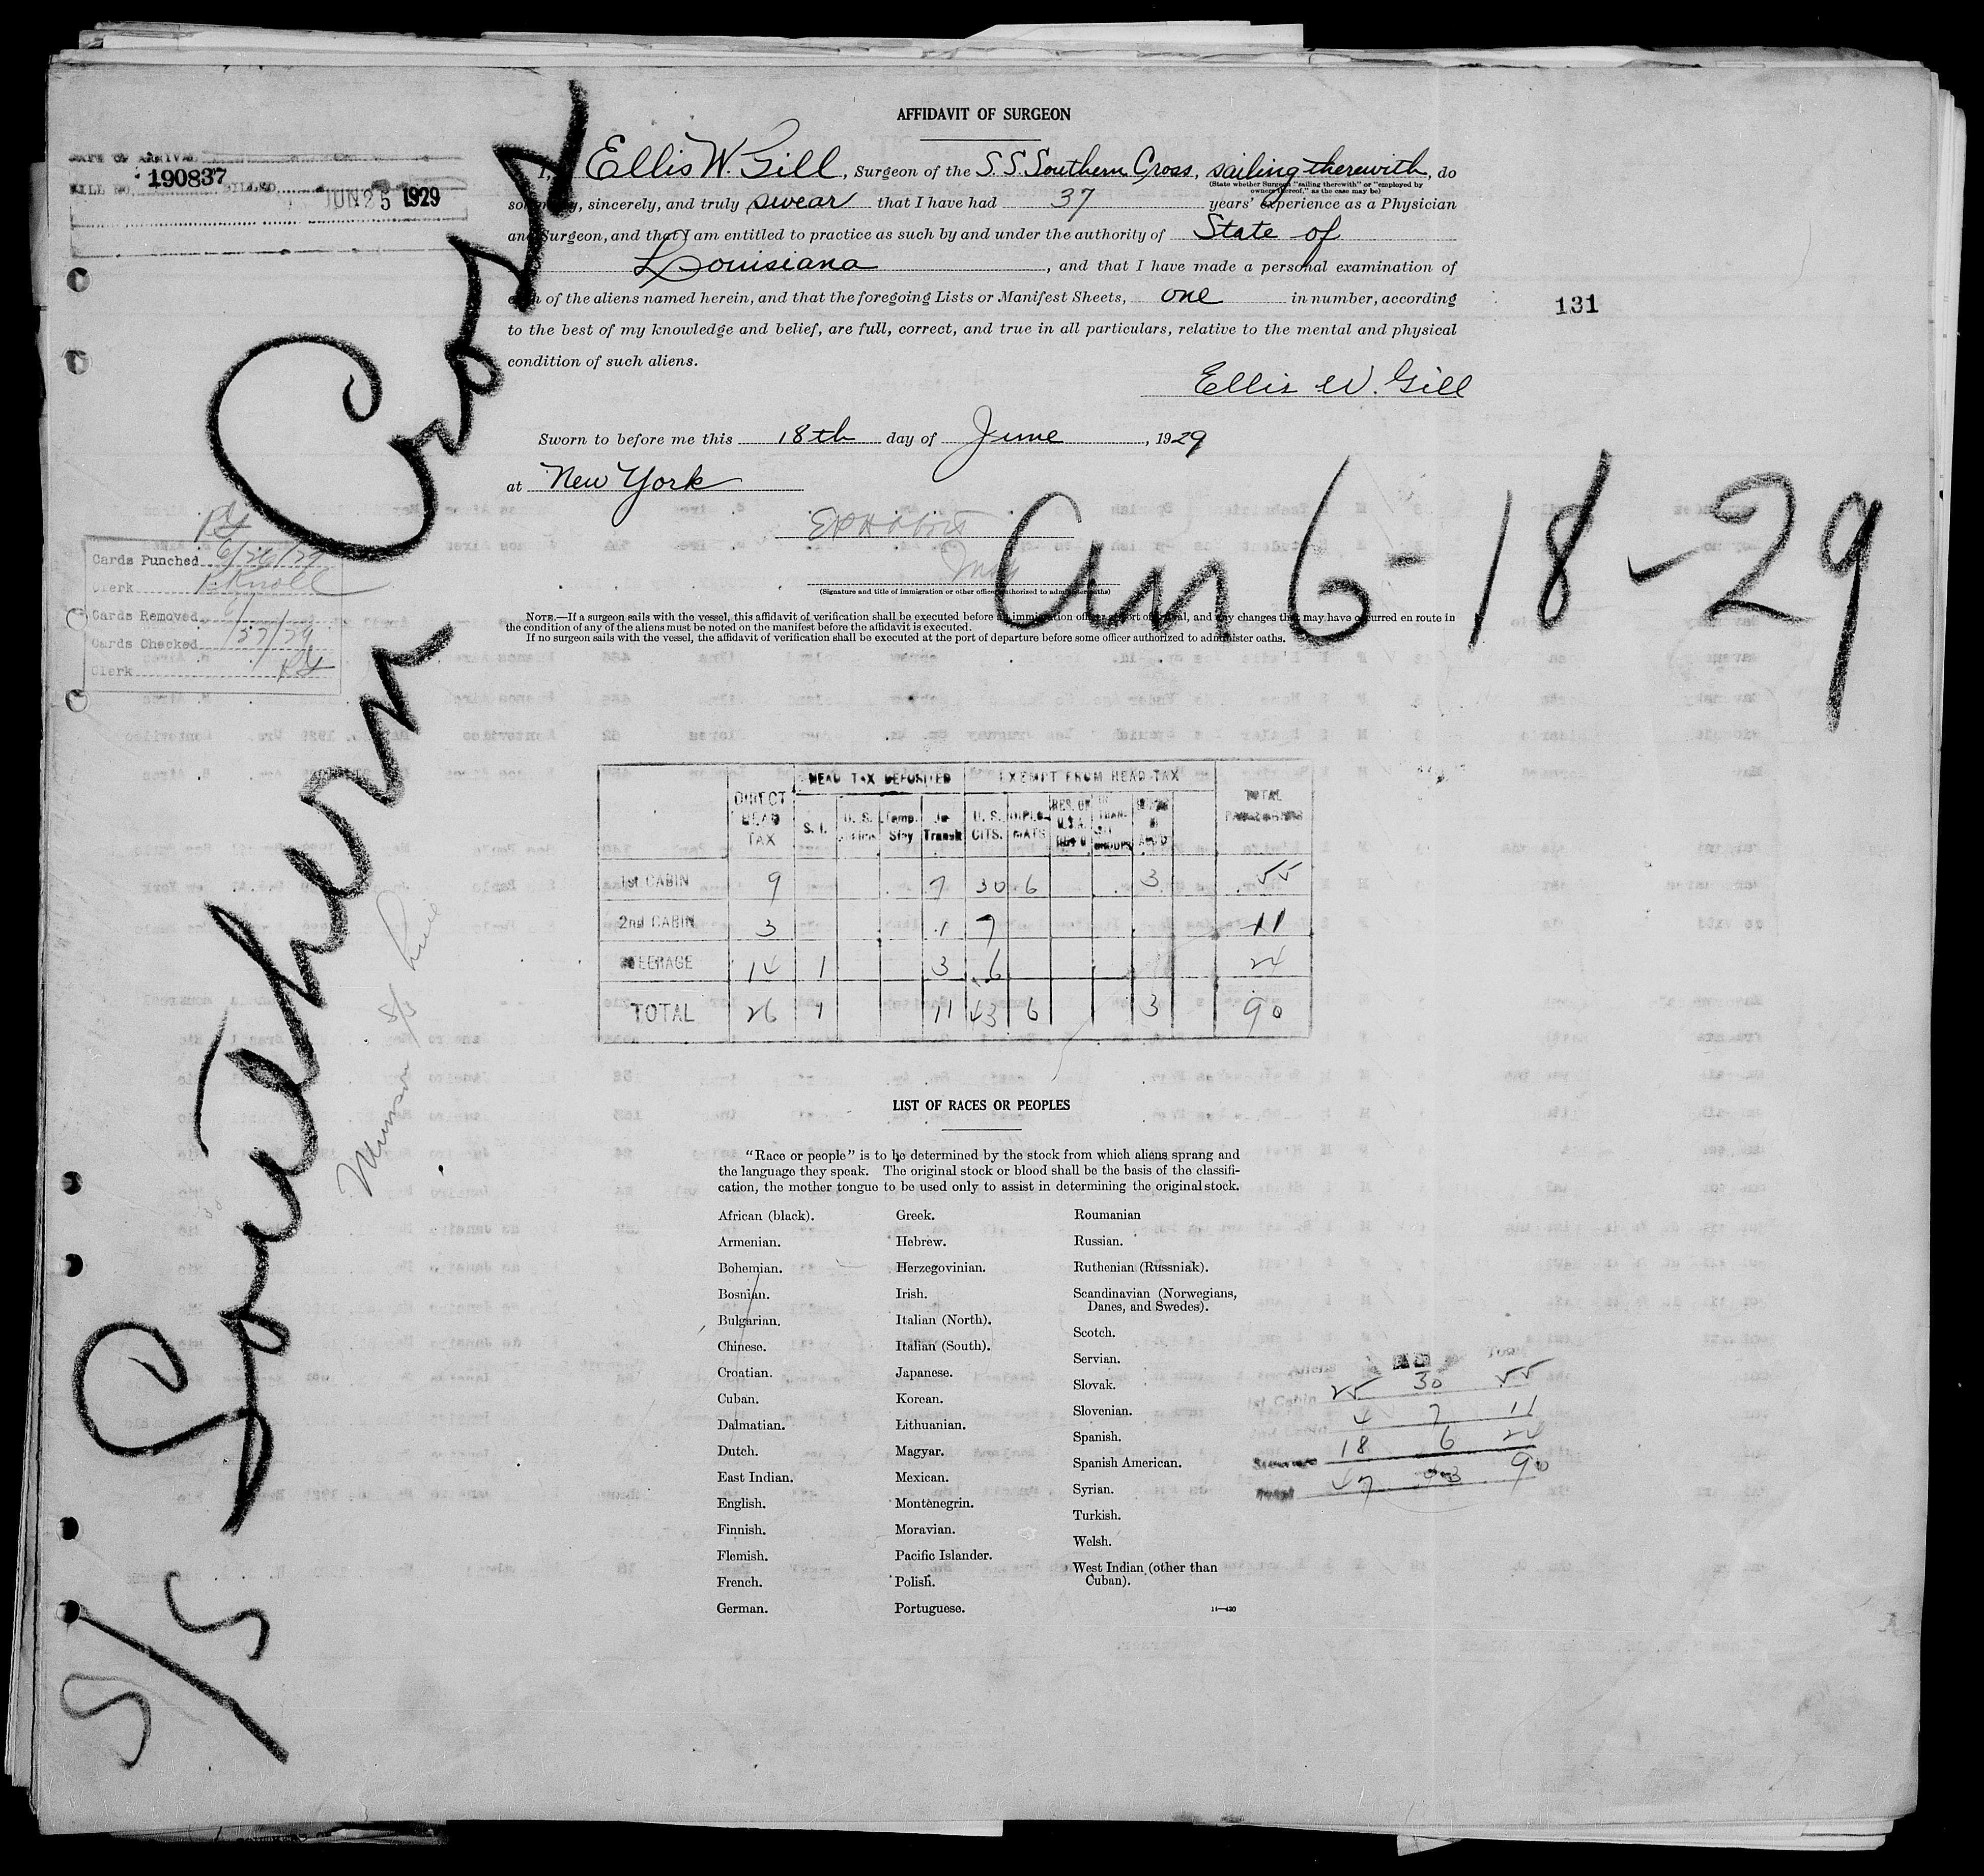 AFFIDAVIT OF SURGEON
DATE OF ARRIVAL
BILL NO. 190837 BILLED JUN 25 1929
I, Ellis W. Gill, Surgeon of the S.S. Southern Cross, sailing therewith, do
(State whether Surgeon "sailing therewith" or "employed by
owners thereof," as the case may be)
solemnly, sincerely, and truly swear that I have had 37 years' experience as a Physician
and Surgeon, and that I am entitled to practice as such by and under the authority of State of
Louisiana, and that I have made a personal examination of
each of the aliens named herein, and that the foregoing Lists or Manifest Sheets, one in number, according
to the best of my knowledge and belief, are full, correct, and true in all particulars, relative to the mental and physical
condition of such aliens.
131
Ellis W. Gill
Sworn to before me this 18th day of June, 1929
at New York
(Signature and title of immigration or other officer authorized to administer oaths)
NOTE.—If a surgeon sails with the vessel, this affidavit of verification shall be executed before an immigration officer at port of arrival, and any changes that may have occurred en route in
the condition of any of the aliens must be noted on the manifest before the affidavit is executed.
If no surgeon sails with the vessel, the affidavit of verification shall be executed at the port of departure before some officer authorized to administer oaths.
6-18-29
S/S Southern Cross
Munson S/S Line
Cards Punched 6/26/29
Clerk
Cards Removed
Cards Checked
Clerk
HEAD TAX DEPOSITED EXEMPT FROM HEAD TAX
DIRECT HEAD TAX S. I. U. S. Temp. Stay In Transit U. S. CITS. DIPLOMATS RES. OF U.S.A. TOTAL PASSENGERS
1st CABIN 9 7 30 6 3 55
2nd CABIN 3 1 7 11
STEERAGE 14 1 3 6 24
TOTAL 26 1 11 43 6 3 90
LIST OF RACES OR PEOPLES
"Race or people" is to be determined by the stock from which aliens sprang and
the language they speak. The original stock or blood shall be the basis of the classifi-
cation, the mother tongue to be used only to assist in determining the original stock.
African (black).
Armenian.
Bohemian.
Bosnian.
Bulgarian.
Chinese.
Croatian.
Cuban.
Dalmatian.
Dutch.
East Indian.
English.
Finnish.
Flemish.
French.
German.
Greek.
Hebrew.
Herzegovinian.
Irish.
Italian (North).
Italian (South).
Japanese.
Korean.
Lithuanian.
Magyar.
Mexican.
Montenegrin.
Moravian.
Pacific Islander.
Polish.
Portuguese.
Roumanian
Russian.
Ruthenian (Russniak).
Scandinavian (Norwegians,
Danes, and Swedes).
Scotch.
Servian.
Slovak.
Slovenian.
Spanish.
Spanish American.
Syrian.
Turkish.
Welsh.
West Indian (other than
Cuban).
14—430
Aliens
1st Cabin 25 30 55
2nd Cabin 4 7 11
Steerage 18 6 24
Total 47 43 90